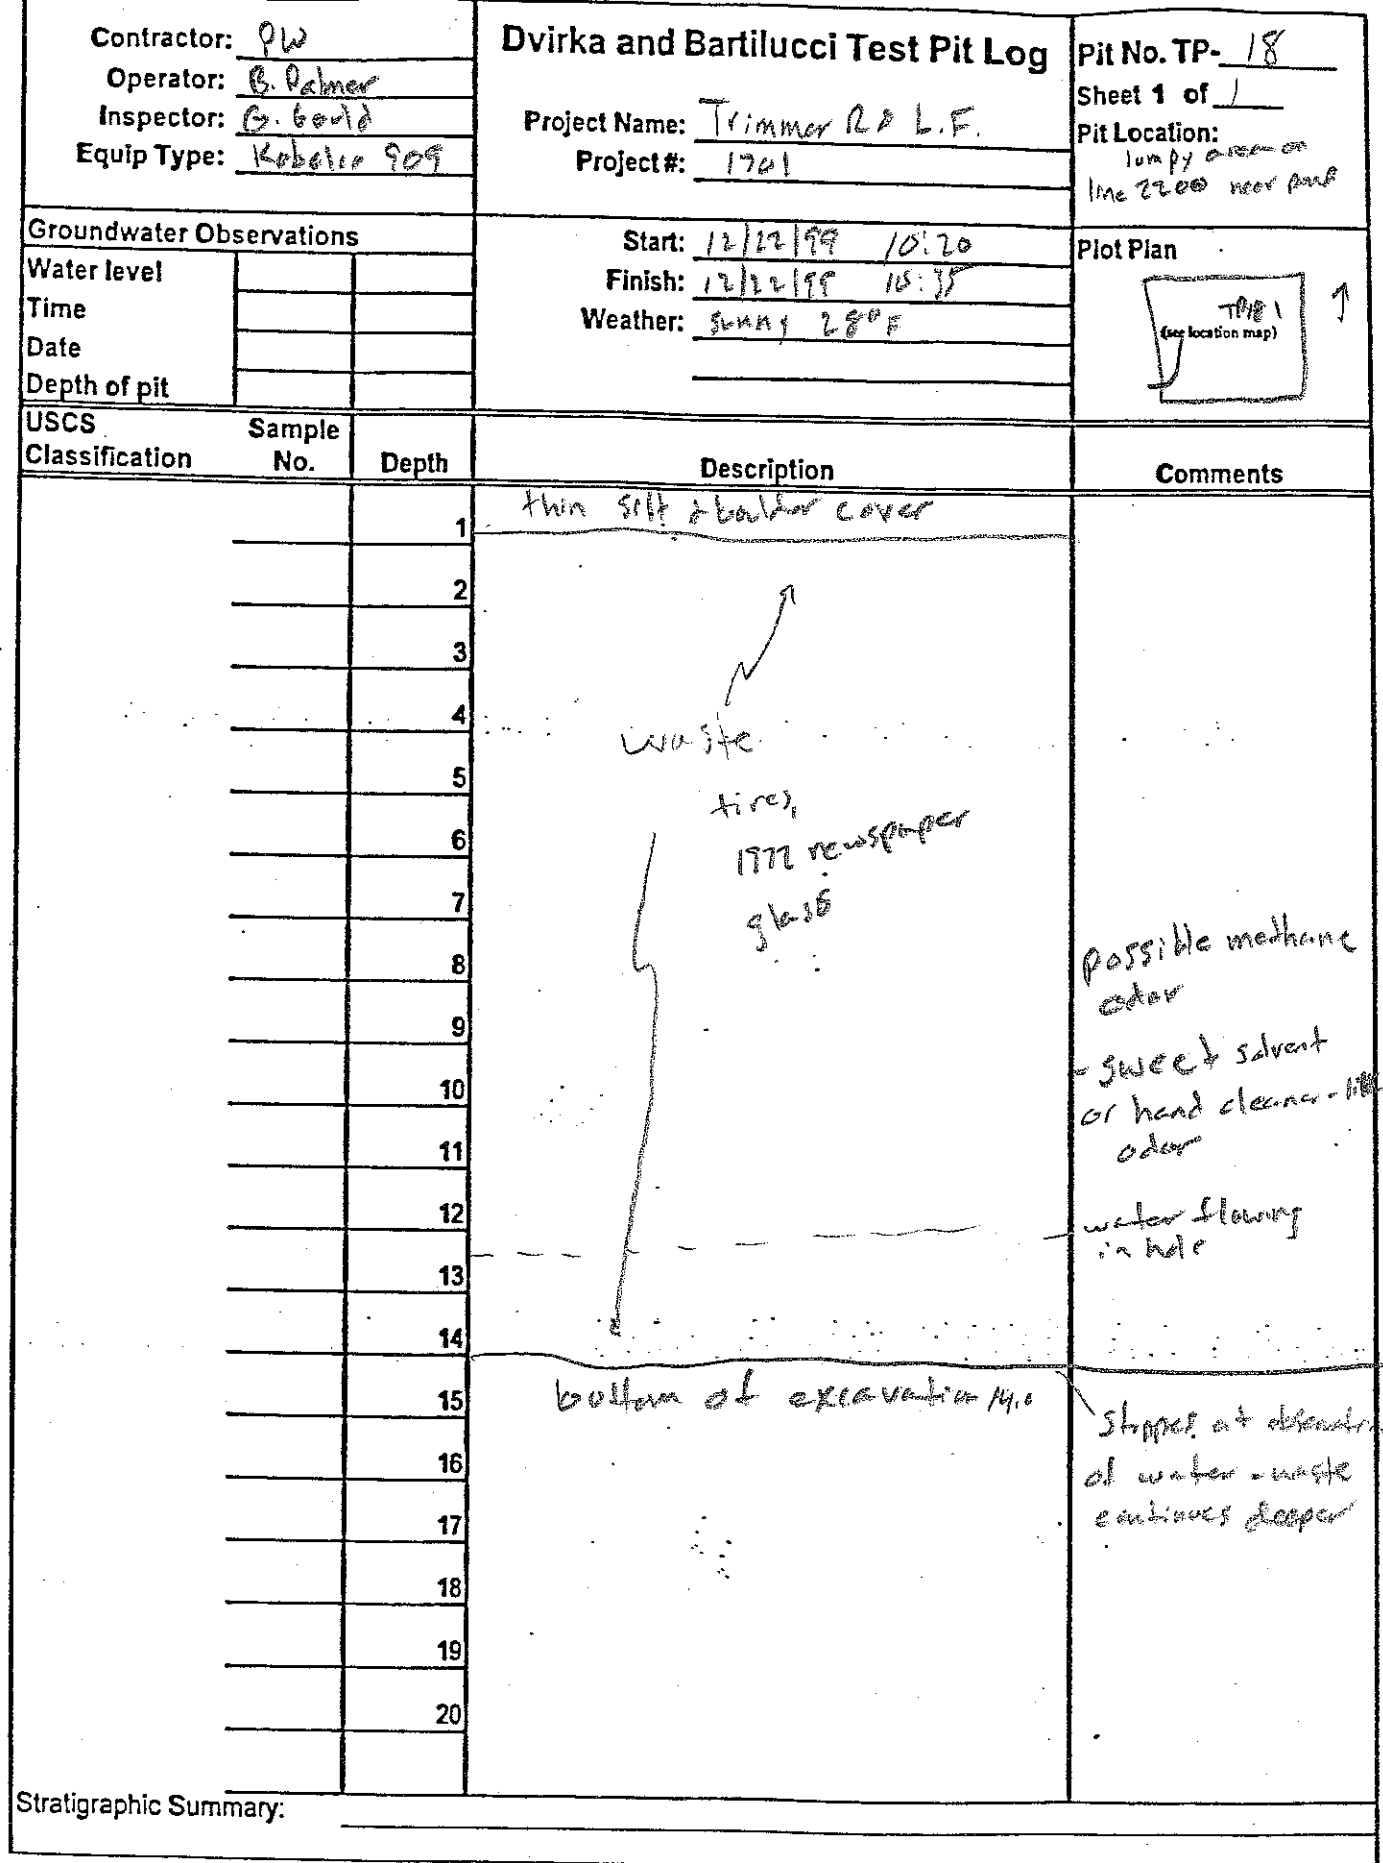 Contractor: PW
Operator: B. Palmer
Inspector: G. Gould
Equip Type: Kobelco 909
Dvirka and Bartilucci Test Pit Log
Project Name: Trimmer Rd L.F.
Project#: 1701
Pit No. TP- 18
Sheet 1 of 1
Pit Location:
lumpy area on
line 2200 near
Groundwater Observations
Water level
Time
Date
Depth of pit
Start: 12/22/99 10:20
Finish: 12/22/99 10:35
Weather: sunny 28°F
Plot Plan
TP18
(see location map)
USCS
Classification
Sample
No.
Depth
Description
Comments
thin silt & boulder cover
1
2
3
4
waste
5
tires,
6
1972 newspaper
7
glass
possible methane
8
odor
9
- sweet solvent
10
or hand cleaner - like
11
odor
12
water flowing
in hole
13
14
bottom of excavation 14.0
15
Stopped at
16
of water - waste
continues deeper
17
18
19
20
Stratigraphic Summary: